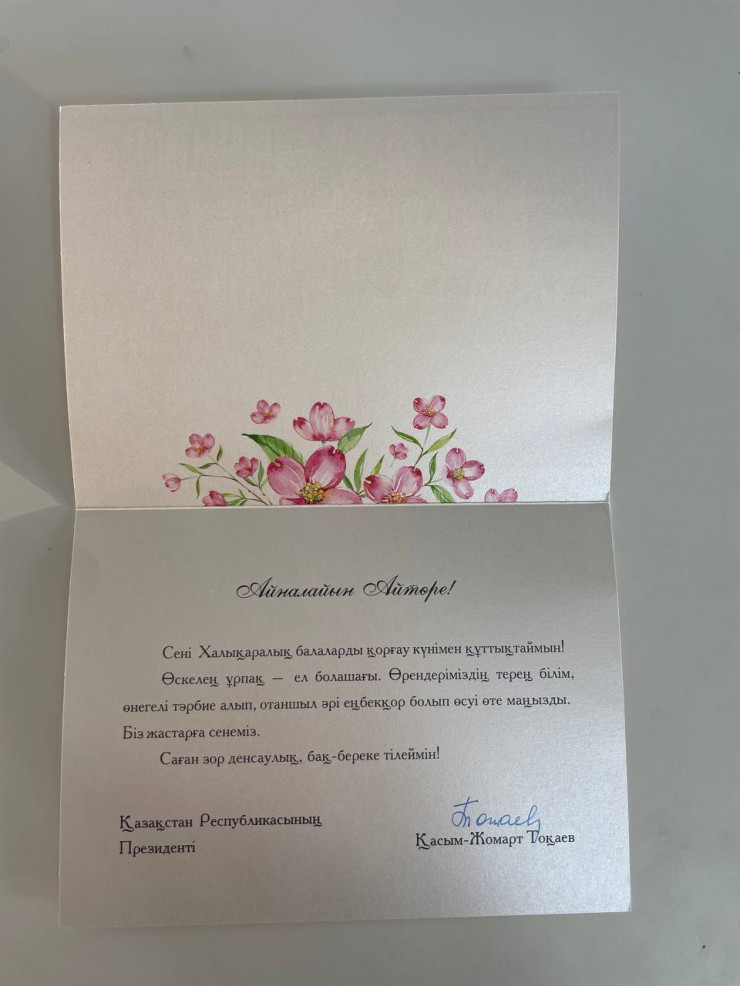 Айналайын Айтөре!
Сені Халықаралық балаларды қорғау күнімен құттықтаймын!
Өскелең ұрпақ — ел болашағы. Өрендеріміздің терең білім,
өнегелі тәрбие алып, отаншыл әрі еңбекқор болып өсуі өте маңызды.
Біз жастарға сенеміз.
Саған зор денсаулық, бақ-береке тілеймін!
Қазақстан Республикасының
Президенті
Тоқаев
Қасым-Жомарт Тоқаев